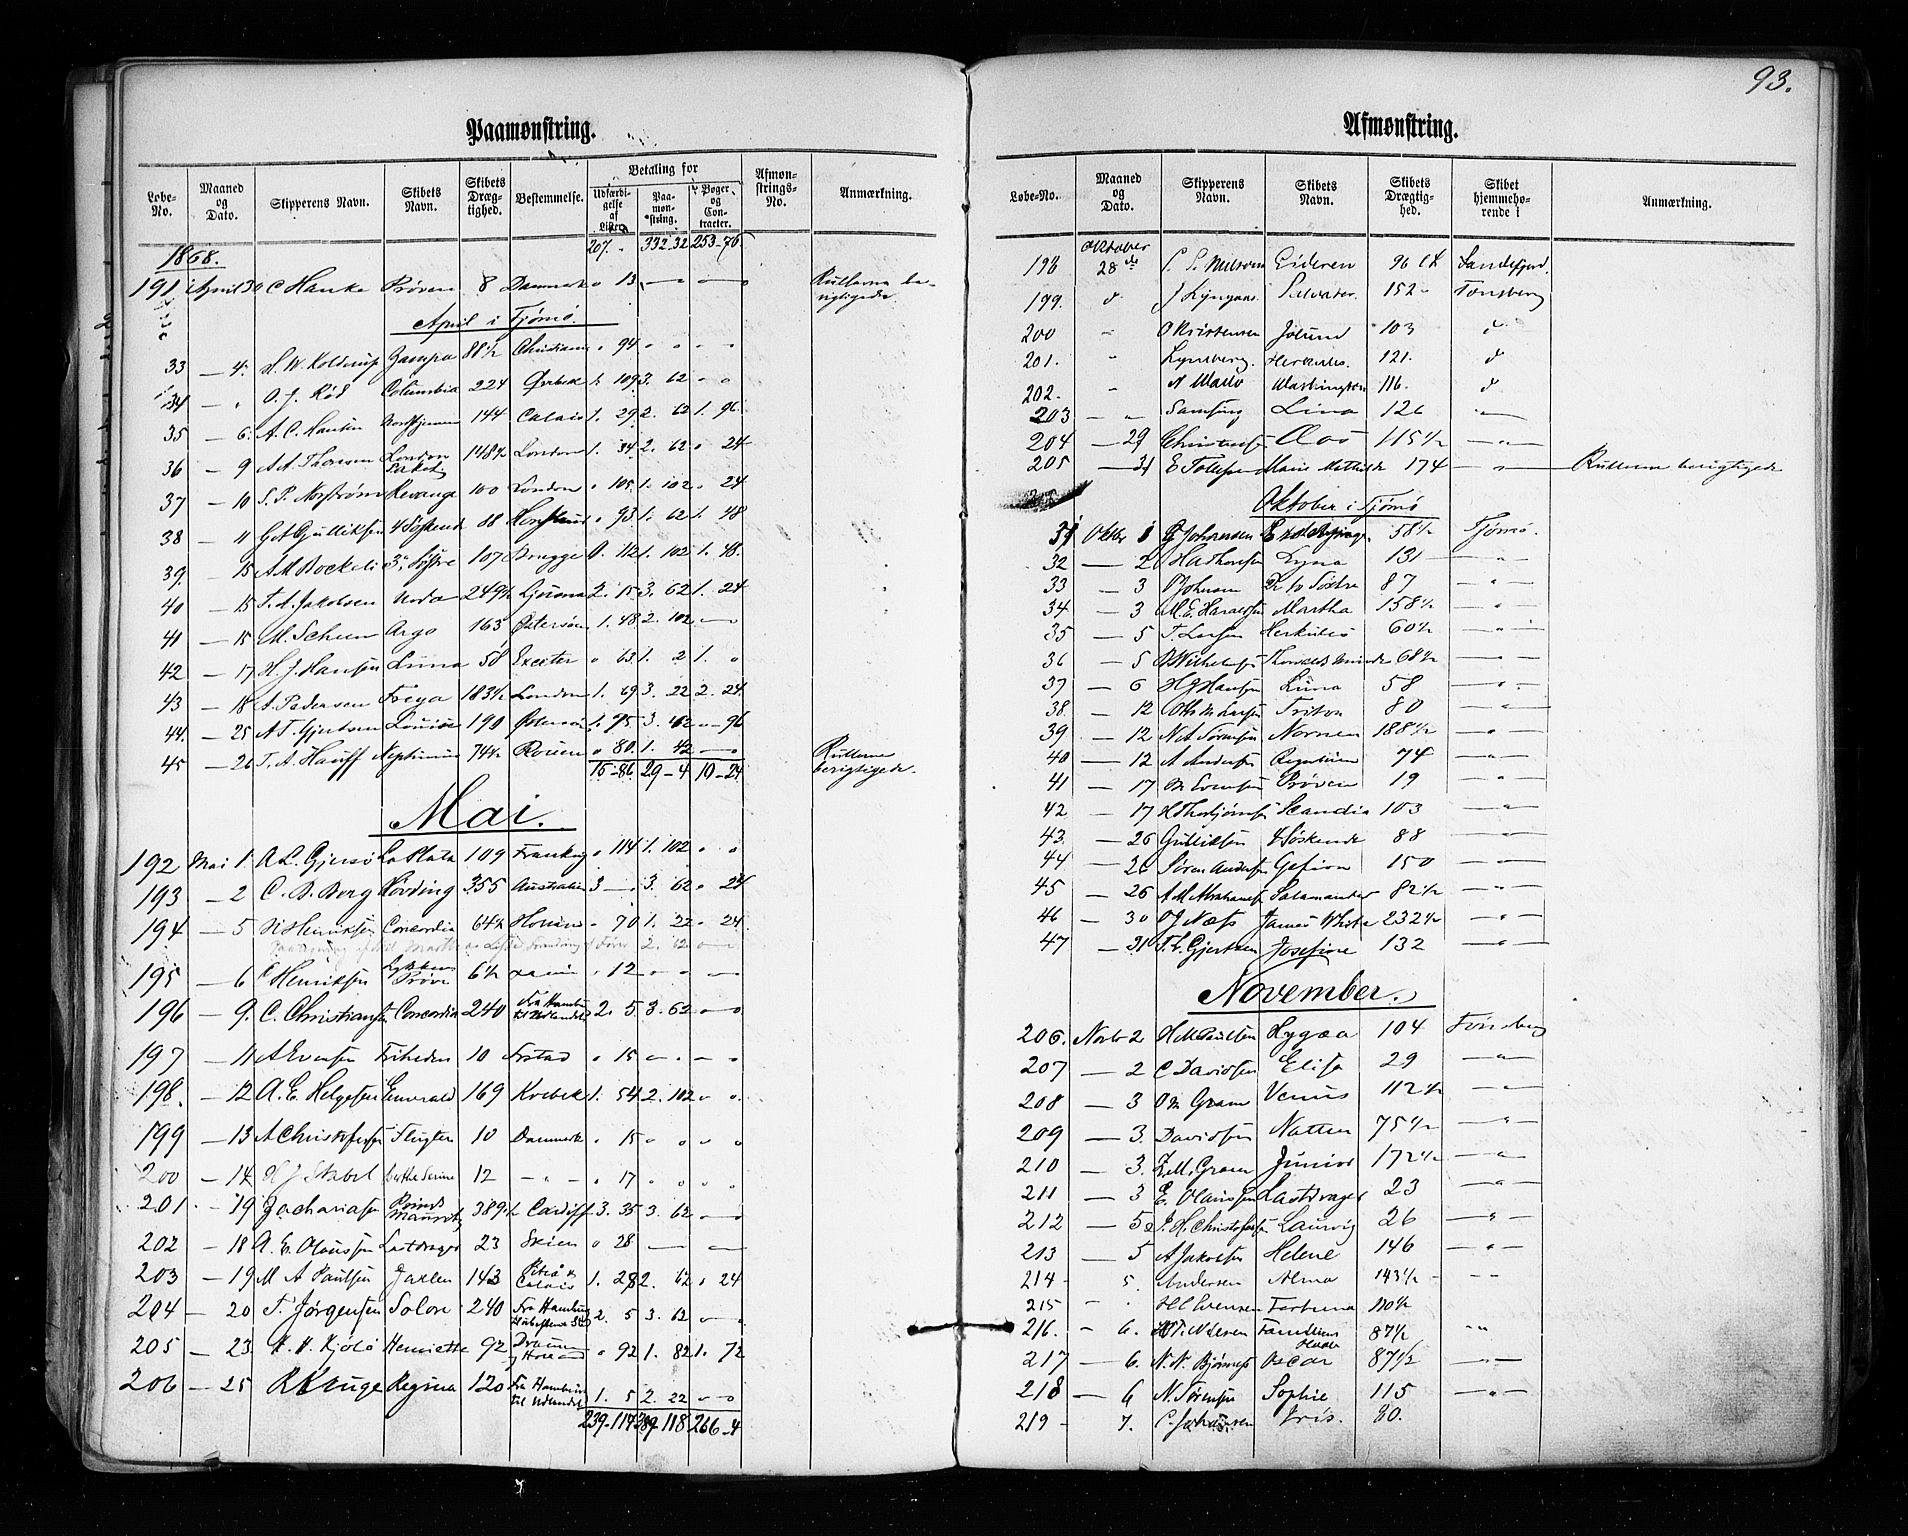 93.
Paamønstring.
Løbe-No. Maaned og Dato. Skipperens Navn. Skibets Navn. Skibets Dræg-tighed. Bestemmelse. Betaling for Udfærdi-gelse af Lister. Paa-møn-string. Bøger og Con-tracter. Afmøn-strings-No. Anmærkning.
1868. 207. - 332-32 253-76
191 April 30 C Hanke Prøven 8 Danmark " 13 — — Rullerne be-rigtigede
April i Tjømø.
33 — 4. H. W. Koldrup Zampa 88½ Christiania " 94 " " " "
34 — " O. J. Röd Columbia 224 Qvebek 1. 109 3. 62 " "
35 — 6. A. C. Hansen Norstjernen 144 Calais 1. 29 2. 62 1. 96
36 — 9 A. A. Thoresen London Paket 148½ London 1. 34 2. 62 " 24
37 — 10 S. P. Norstrøm Revange 100 London " 105 1. 102 " 24
38 — 11 Got Gulliksen 4 Søskende 88 " 93 1. 62 1. 48
39 — 15 A M Bockelie 3 Søstre 107 Brugge 0. 112 1. 102 1. 48.
40 — 15 T. A. Jakobsen Unda 249½ 2. 15 3. 62 1. 24
41 — 15 M. Scheen Argo 163 Østersøen 1. 48 2. 102 — "
42 — 17 H. J. Hansen Luna 58 Exeter " 63 1. 2 1. "
43 — 18 A. Pedersen Freya 183½ London 1. 69 3. 22 2. 24
44. — 25 A T. Gjertsen Louise 190 Østersøen 1. 75 3. 62 " 96
45 — 26 T. A. Hauff Neptunus 74½ Rouen " 80. 1. 42 — " Rullerne berigtigede.
15-86 29-4 10-24
Mai.
192 Mai 1. A L. Gjersø La Plata 109 " 114 1. 102 " "
193 — 2 C. B. Berg Høvding 355 Australien 3 — 3. 62 " 24
194 — 5 N Henriksen Concordia 64½ " 70 1. 22 " 24
195 — 6 C Henriksen Lykkens Prøve 6½ " 12 " " " "
196 — 9. C. Christiansen Concordia 240 Fra Hamburg til Udlandet 2. 5 3. 62 — "
197 — 11 A Evensen Friheden 10 " 15 — . — "
198. — 12 A. E. Helgesen Emerald 169 Kvebek 1. 54 2. 102 " "
199 — 13 A Christofersen Flugten 10 Danmark " 15 " " " "
200 — 14 H J Stabel Berthe Serine 12 — " — " 17 " " " "
201 — 19 Zachariasen Prinds Mauritz 389½ Cardiff 3. 35 3. 62 — "
202 — 18 A. E. Olaussen Lastdrager 23 Skien " 28 — —
203 — 19 M A Paulsen Jarlen 143 Piteå & Calais 1. 28 2. 62 " 24
204 — 20 T. Jørgensen Solon 240 Fra Hamburg 2. 5 3. 62 — "
205 — 23 Henriette 92 Drammen & Holland " 92 1. 82 1. 72
206 — 25 R Kruge Regina 120 Fra Hamburg til Udlandet 1. 5 2. 22 " "
239-117 389-118 266-4
Afmønstring.
Løbe-No. Maaned og Dato. Skipperens Navn. Skibets Navn. Skibets Drægtig-hed. Skibet hjemmehø-rende i Anmærkning.
198 Oktober 28de Eideren 96 Sandefjord.
199. d Salvator 152 Tønsberg
200 " O Kristensen Jølund 103 d
201. " Lynsberg Herkules. 121. d
202. " Washington 116. d
203 — " Lina 126 — " —
204 — 29 Christensen 115½ — " —
205 — 31 E Tollefsen Marie Mathilde 174 — " — Rullerne berigtigede
Oktober i Tjømø
31 Oktbr 1 G Johannesen 58½ Tjømø.
32 — 2 Lyna 131 — " —
33 — 3 B Johnsen De to Søstre 87 — " —
34 — 3 M. E. Haraldsen Martha 158½ — " —
35 — 5 T. Larsen Herkules 60½ — " —
36 — 5 O Wilhelmsen Thorvalds Minde 68½ — " —
37 — 6 H J Hansen Luna 58 — " —
38. — 12 Otto M Larsen Triton 80 — " —
39 — 12 N A Sørensen Nornen 188½ — " —
40 — 12 A Andersen 74 — " —
41 — 17 Prøven 19 — " —
42 — 17 H Thorbjørnsen Scandia 103 — " —
43. — 26 Gulliksen 4 Søskende 88 — " —
44 — 26 Søren Andersen Gefion 150 — " —
45 — 26 A M Abrahamsen Salamander 82½ — " —
46 — 30 O J Næss James White 232½ — " —
47 — 31 T. C. Gjertsen Josefine 132 — " —
November.
206. Novbr 2 H M Paulsen Hygæa 104 Tønsberg
207 — 2 C Davidsen Elise 29 — " —
208 — 3 O M Gram Venus 112½ — " —
209 — 3. Davidsen Natten 75½ — " —
210 — 3. Z. M. Gram Junior 172½ — " —
211 — 3 E. Olaussen Lastdrager 23 — " —
212 — 5 H. Christofersen Laurvig 26 — " —
213 — 5 A Jakobsen Helene 146 — " —
214 - 5. Andersen Alma 143½ - " -
215 - " H C Evensen Fortuna 110½
216. - 6. Familiens Haab 87½ " "
217 — 6. N. N. Bjønnes Oscar 87½ — " —
218 — 6 N. Sørensen Sophie 115 — " —
219 - 7. C. Johansen Iris. 80.